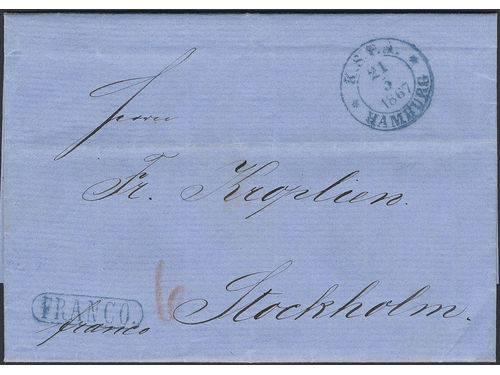 K.S.P.A.
21
5
1867
HAMBURG
Herrn
Fr. Kroplien.
6
Stockholm.
FRANCO.
franco